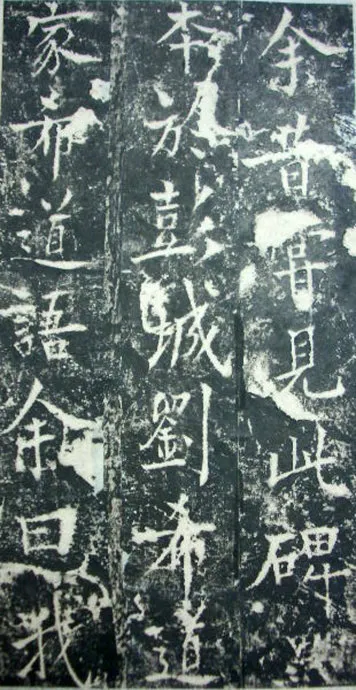 余昔嘗見此碑
本於彭城劉希道
家希道語余曰我